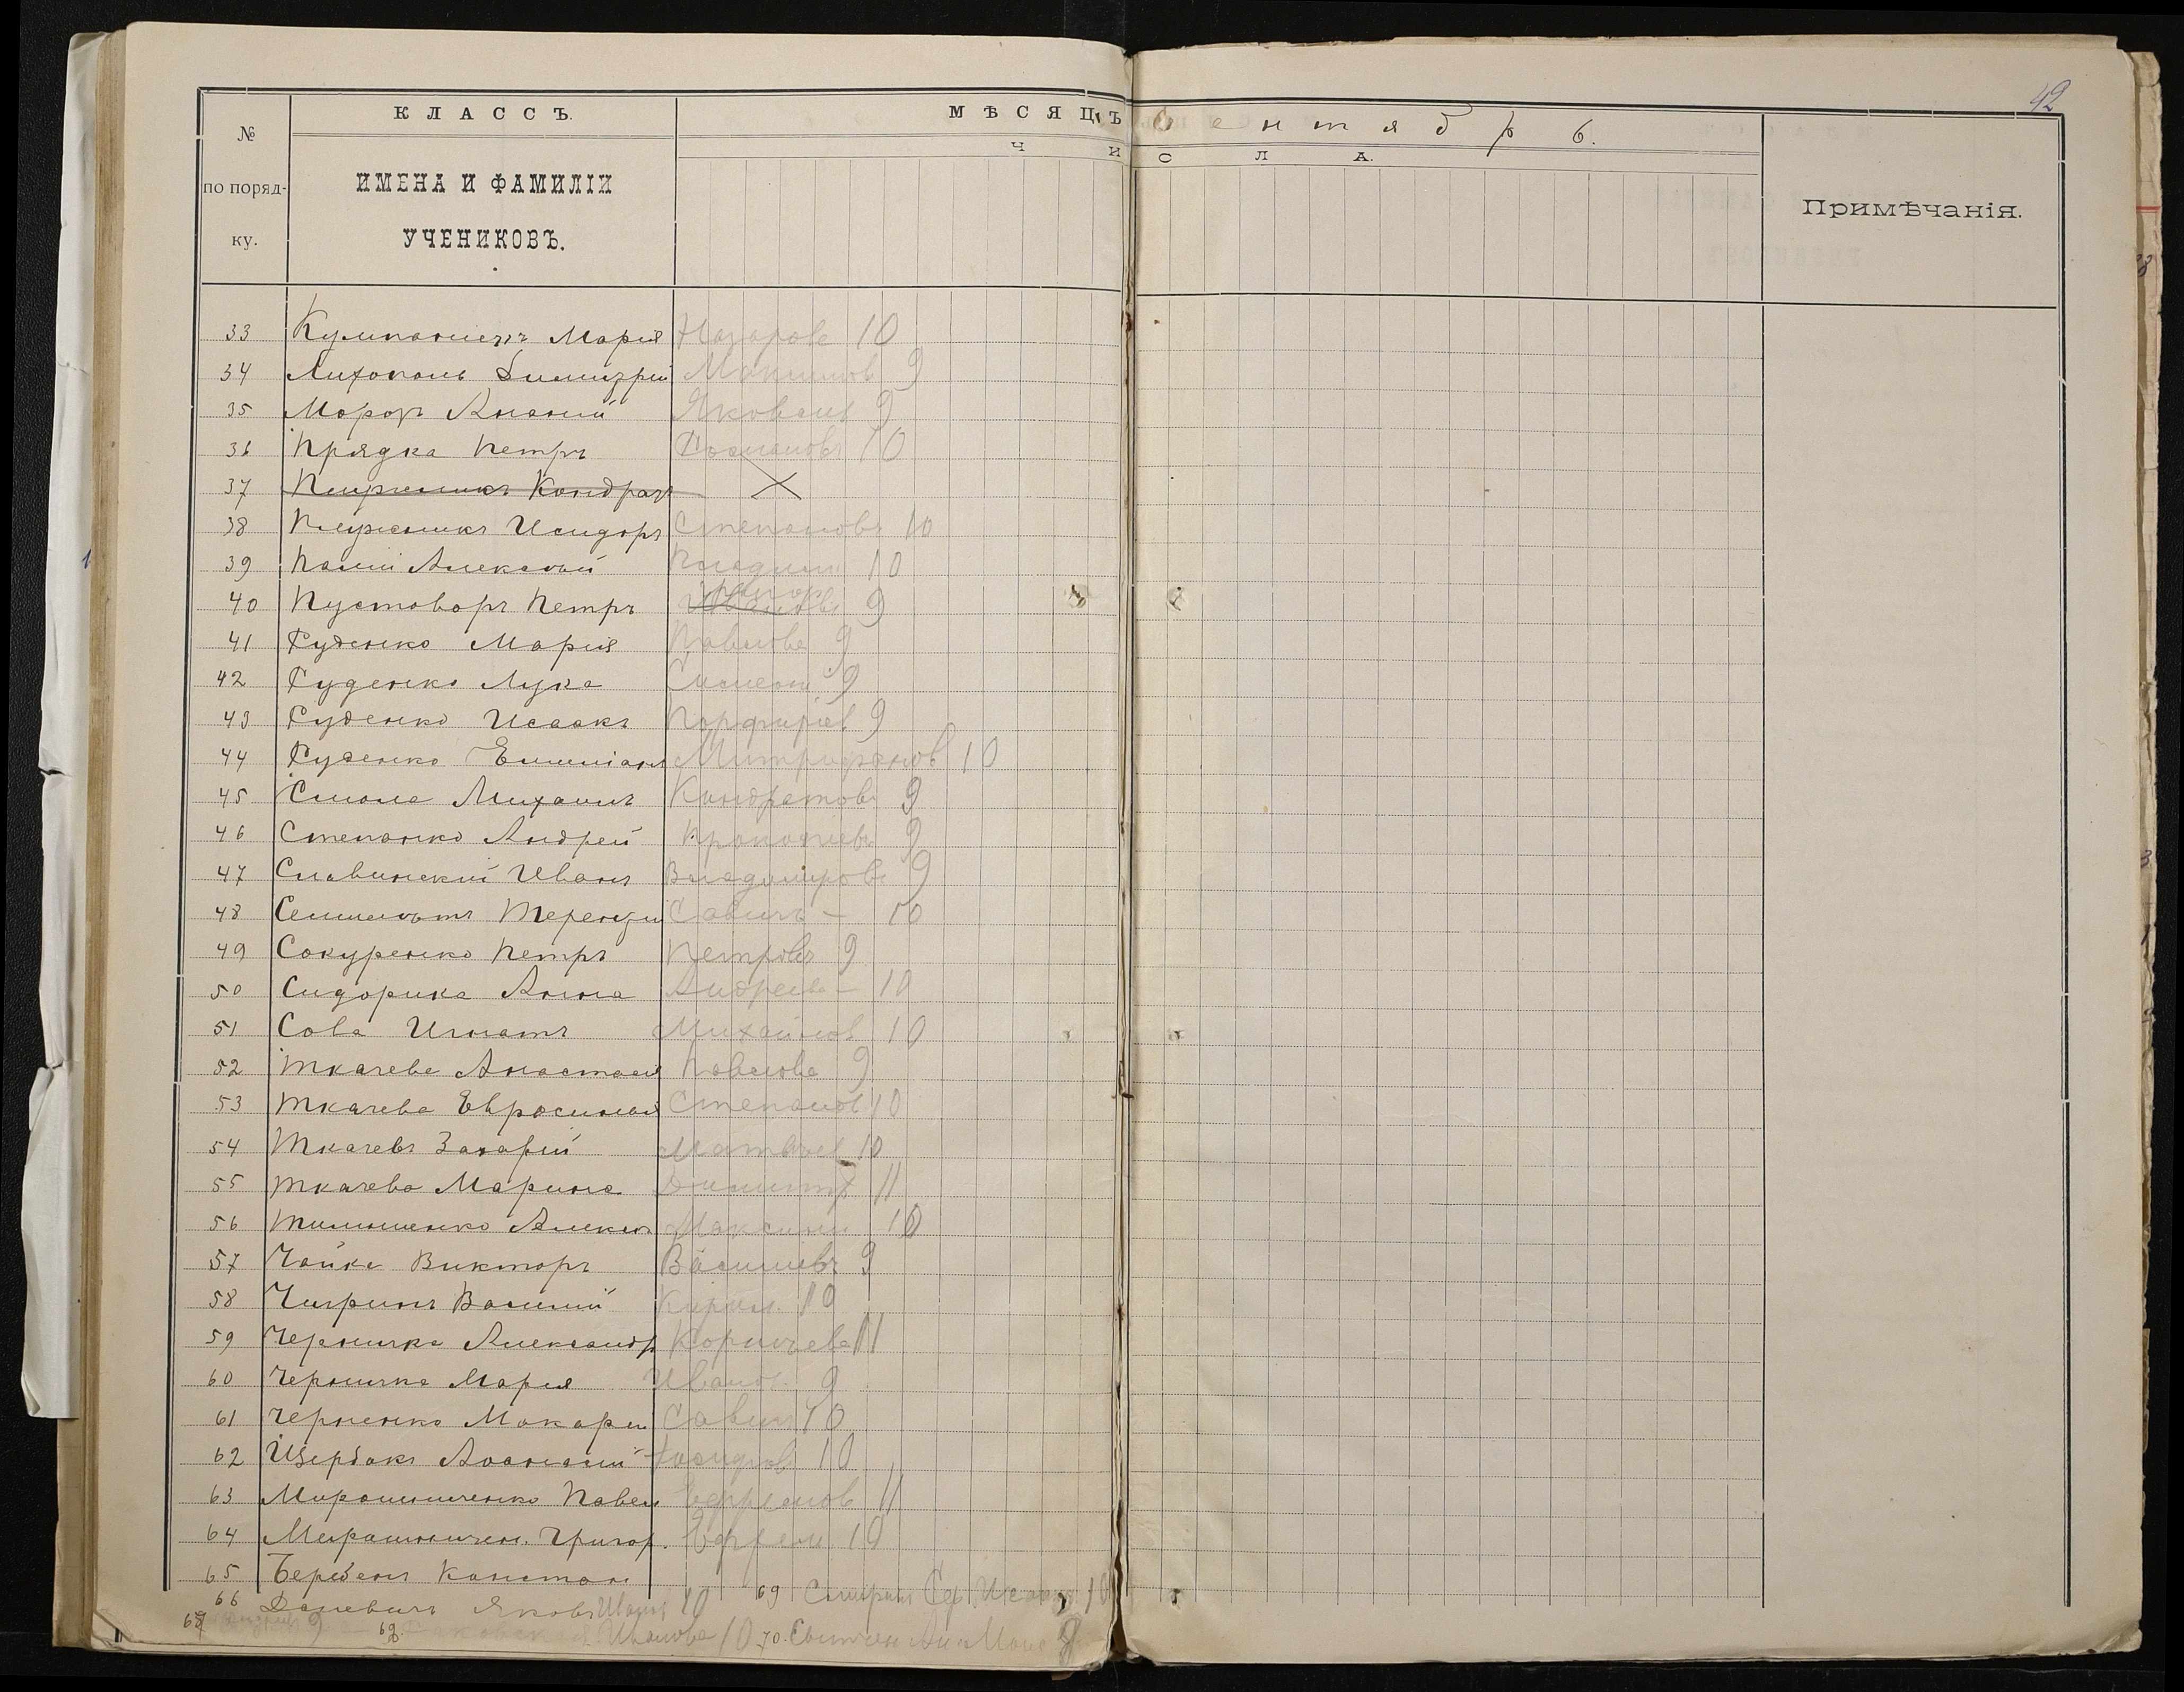 42
№ по поряд-ку.
КЛАССЪ.
ИМЕНА И ФАМИЛІИ
УЧЕНИКОВЪ.
МѢСЯЦЪ Сентябрь.
ЧИСЛА.
Примѣчанія.
33 Марія Назарова 10
34 Лихополь Димитрій Максимов 9
35 Мороз Ананий Яковлев 9
36 Прядка Петръ 10
37 Плужникъ Кондратъ ×
38 Плужникъ Исидоръ Степановъ 10
39 Палій Алексѣй 10
40 Пустоваръ Петръ 9
41 Руденко Марія Павлова 9
42 Руденко Лука 9
43 Руденко Исаакъ Порфиріев 9
44 Руденко Емиліанъ Митрофанов 10
45 Смола Михаилъ Кондратовъ 9
46 Степанко Андрей Прокофіевъ 9
47 Славинскій Иванъ Владиміровъ 9
48 Терентій Савичъ - 10
49 Сокуренко Петръ Петровъ 9
50 Сидорика Анна Андреева - 10
51 Сова Игнатъ Михайлов 10
52 Ткачева Анастасія Павлова 9
53 Ткачева Евросинія Степанов 10
54 Ткачевъ Захарій Матвѣев 10
55 Ткачева Марина Димитр 11
56 Тимошенко Алексѣ Максим 10
57 Чайка Викторъ Васильевъ 9
58 Чигринъ Василій Кирил. 10
59 Черничка Александр Корнѣева 11
60 Черничка Марія Иванов. 9
61 Черненко Макарій Савич 10
62 Щербакъ Аѳанасій 10
63 Мирошниченко Павел Ефремов 11
64 Мирошничен. Григор. Ефрем 10
65 Беребенъ Констан
66 Даневичъ Яковъ Иванов 10 69 Исааков 10
67 9 Иванова 10 70. 8